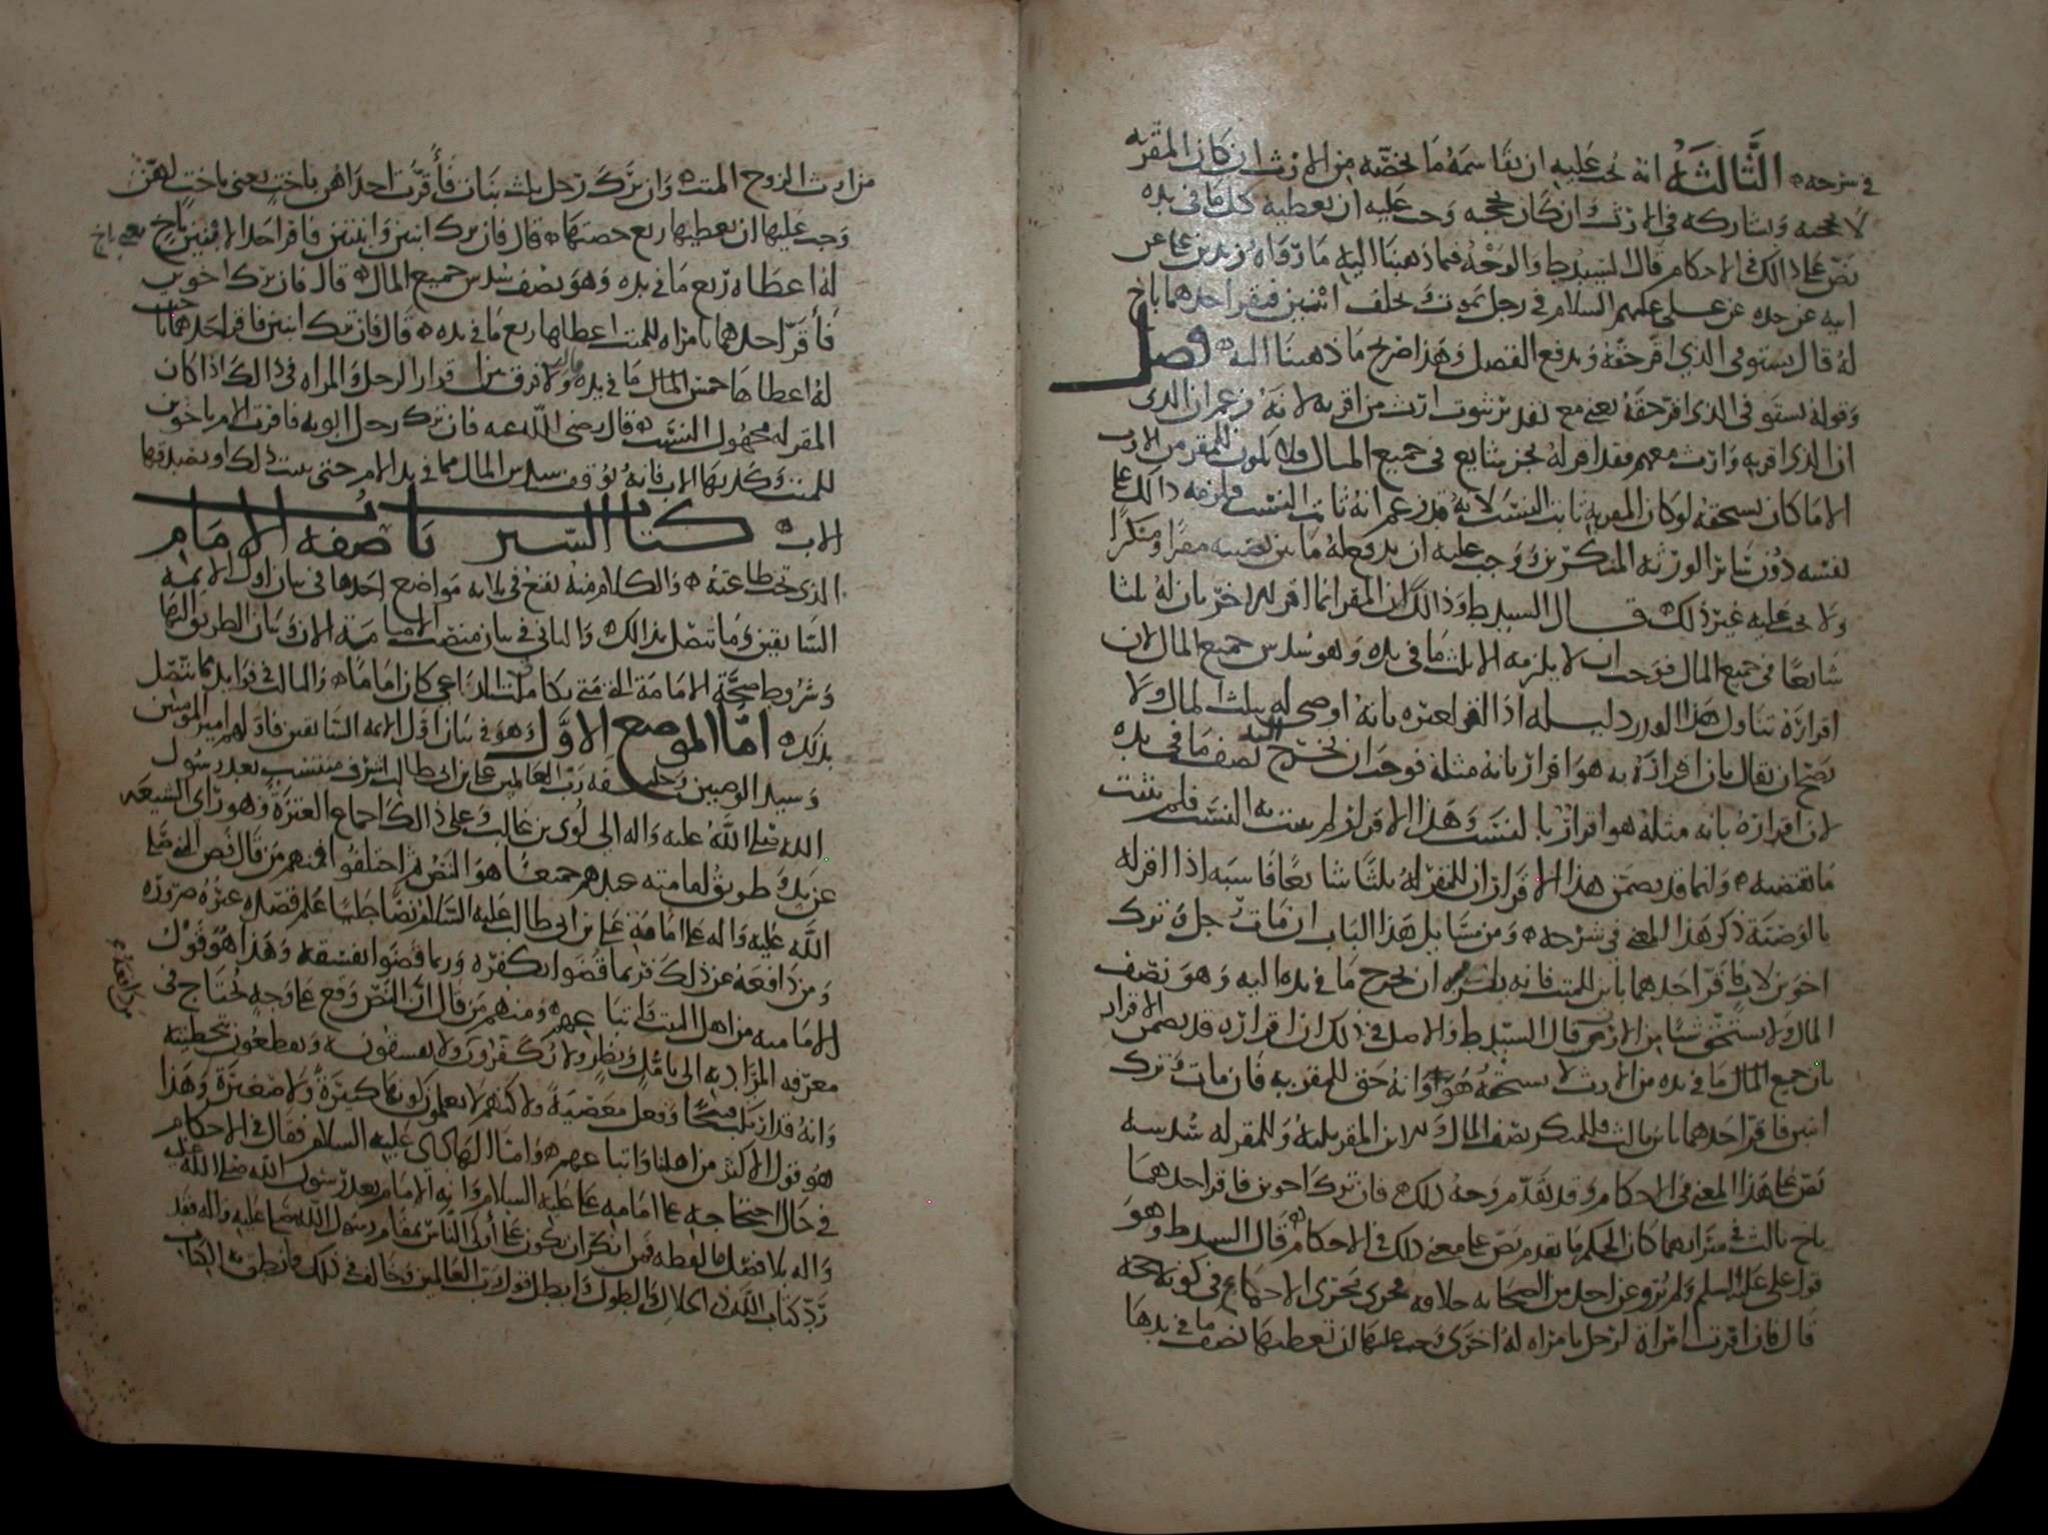 في شرحه ه الثالثة انه يجب عليه ان يقاسمه ما يخصه من الارث ان كان المقر به
لا يحجبه ويشاركه في الارث وان كان يحجبه وجب عليه ان يعطيه كل ما في يده
نص على ذلك في الاحكام قال السيد ط والوجه فيما ذهبنا اليه ما رواه زيد بن علي عن
ابيه عن جده عن علي عليهم السلام في رجل يموت ويخلف ابنين فيقر احدهما باخ
له قال يستوفي الذي اقر حقه ويدفع الفضل وهذا صريح ما ذهبنا اليه ه فصل
وقوله يستوفي الذي اقر حقه يعني مع تقدير ثبوت ارث من اقر به لانه زعم ان الذي
ان الذي اقر به وارث معهم فقد اقر له بجزء شايع في جميع المال ولا يكون للمقر من الارث
الا ما كان يستحقه لو كان المقر به ثابت النسب لانه قد زعم انه ثابت النسب فلزمه ذلك على
نفسه دون سائر الورثة المنكرين ووجب عليه ان يدفع له ما بين نصيبه مقرا ومنكرا
ولا يجب عليه غير ذلك قال السيد ط وذلك ان المقر انما اقر للاخر بان له ثلثا
شايعا في جميع المال فوجب ان لا يلزمه الا ثلث ما في يده وهو سدس جميع المال لان
اقراره تناول هذا القدر دليله اذا اقر لغيره بانه اوصى له بثلث المال ولا
يصح ان يقال بان اقراره به هو اقرار بانه مثله فوجب ان يخرج اليه نصف ما في يده
لان اقراره بانه مثله هو اقرار بالنسب وهذا الاقرار لم يثبت به النسب فلم يثبت
ما يقتضيه ه وانما قد يضمن هذا الاقرار ان للمقر له ثلثا شايعا فاشبه اذا اقر له
بالوصية ذكر هذا المعنى في شرحه ه ومن مسايل هذا الباب ان مات رجل وترك
اخوين لاب فاقر احدهما بابن للميت فانه يلزمه ان يخرج ما في يده اليه وهو نصف
المال ولا يستحق شيئا من الارث قال السيد ط والاصل في ذلك ان اقراره قد يضمن الاقرار
بان جميع المال ما في يده من الارث لا يستحقه هو وانه حق للمقر به فان مات وترك
ابنين فاقر احدهما بابن ثالث فللمنكر نصف المال وللابن المقر ثلثه وللمقر له سدسه
نص على هذا المعنى في الاحكام وقد تقدم وجه ذلك ه فان ترك اخوين فاقر احدهما
باخ ثالث في ميراثهما كان الحكم ما تقدم نص على معنى ذلك في الاحكام ه قال السيد ط وهو
قول علي عليه السلم ولم يرو عن احد من الصحابة خلافه فجرى مجرى الاجماع في كونه حجة
قال فان اقرت امرأة لرجل بامراه له اخرى وجب عليها ان تعطيها نصف ما في يدها
من ارث الزوج الميت ه وان ترك رجل ثلث بنات فأقرت احداهن باخت يعني باخت لهن
وجب عليها ان يعطيها ربع حصتها ه قال فان ترك ابنين وابنتين فاقر احد الابنين باخ يعني باخ
له اعطاه ربع ما في يده وهو نصف سدس جميع المال ه قال فان ترك اخوين
فأقر احدهما بامراه للميت اعطاها ربع ما في يده ه قال فان ترك ابنين فاقر احدهما باخت
له اعطاها خمس المال ما في يده ولا فرق بين اقرار الرجل والمراه في ذلك اذا كان
المقر له مجهول النسب ه قال رضي الله عنه فان ترك رجل ابويه فاقرت الام باخوين
للميت وكذبها الاب فانه يوقف سدس المال مما في يد الام حتى يثبت ذلك او يصدقها
الاب ه كتاب السير باب صفه الامام
الذي تجب طاعته ه والكلام منه يقع في ثلثة مواضع احدها في بيان اول الائمة
السابقين وما يتصل بذلك ه والثاني في بيان منصب الامامة الان وبيان الطريق اليها
وشروط صحة الامامة التي متى تكاملت للداعي كان اماما ه والثالث في فوايد مما تتصل
بذلك ه اما الموضع الاول وهو في بيان اول الائمه السابقين فاولهم امير المومنين
وسيد الوصيين وخليفة رب العالمين علي بن ابي طالب اشرف منتسب بعد رسول
الله صلى الله عليه واله الى لوي بن غالب وعلى ذلك اجماع العترة وهو راي الشيعه
عن يد وطريق امامته عندهم جميعا هو النص ثم اختلفوا فمنهم من قال نص النبي صلى
الله عليه واله على امامة علي بن ابي طالب عليه السلام نصا جليا علم قصده عنده ضرورة
ومن دافعه عن ذلك فربما قضوا بكفره وربما قضوا بفسقه وهذا هو قول
الامامية من اهل البيت واتباعهم ه ومنهم من قال ان النص وقع على وجه يحتاج في
معرفه المراد به الى تأمل ونظر ولا يكفرون ولا يفسقون وبقطعون بتخطئته
وانه قد ارتكب قبيحا وفعل معصية ولاكنهم لا يعلمون كونها كبيرة ولا صغيرة وهذا
هو قول الاكثر من اهلنا واتباعهم ه واما الهادي عليه السلام فقال في الاحكام
في حال احتجاجه على امامه علي عليه السلام وانه الامام بعد رسول الله صلى الله عليه
واله بلا فصل ما لفظه فمن انكر ان يكون علي أولى الناس بمقام رسول الله صلى الله عليه واله فقد
رد كتاب الله ذي الجلال والطول وابطل قول رب العالمين وخالف في ذلك ما نطق به الكتاب